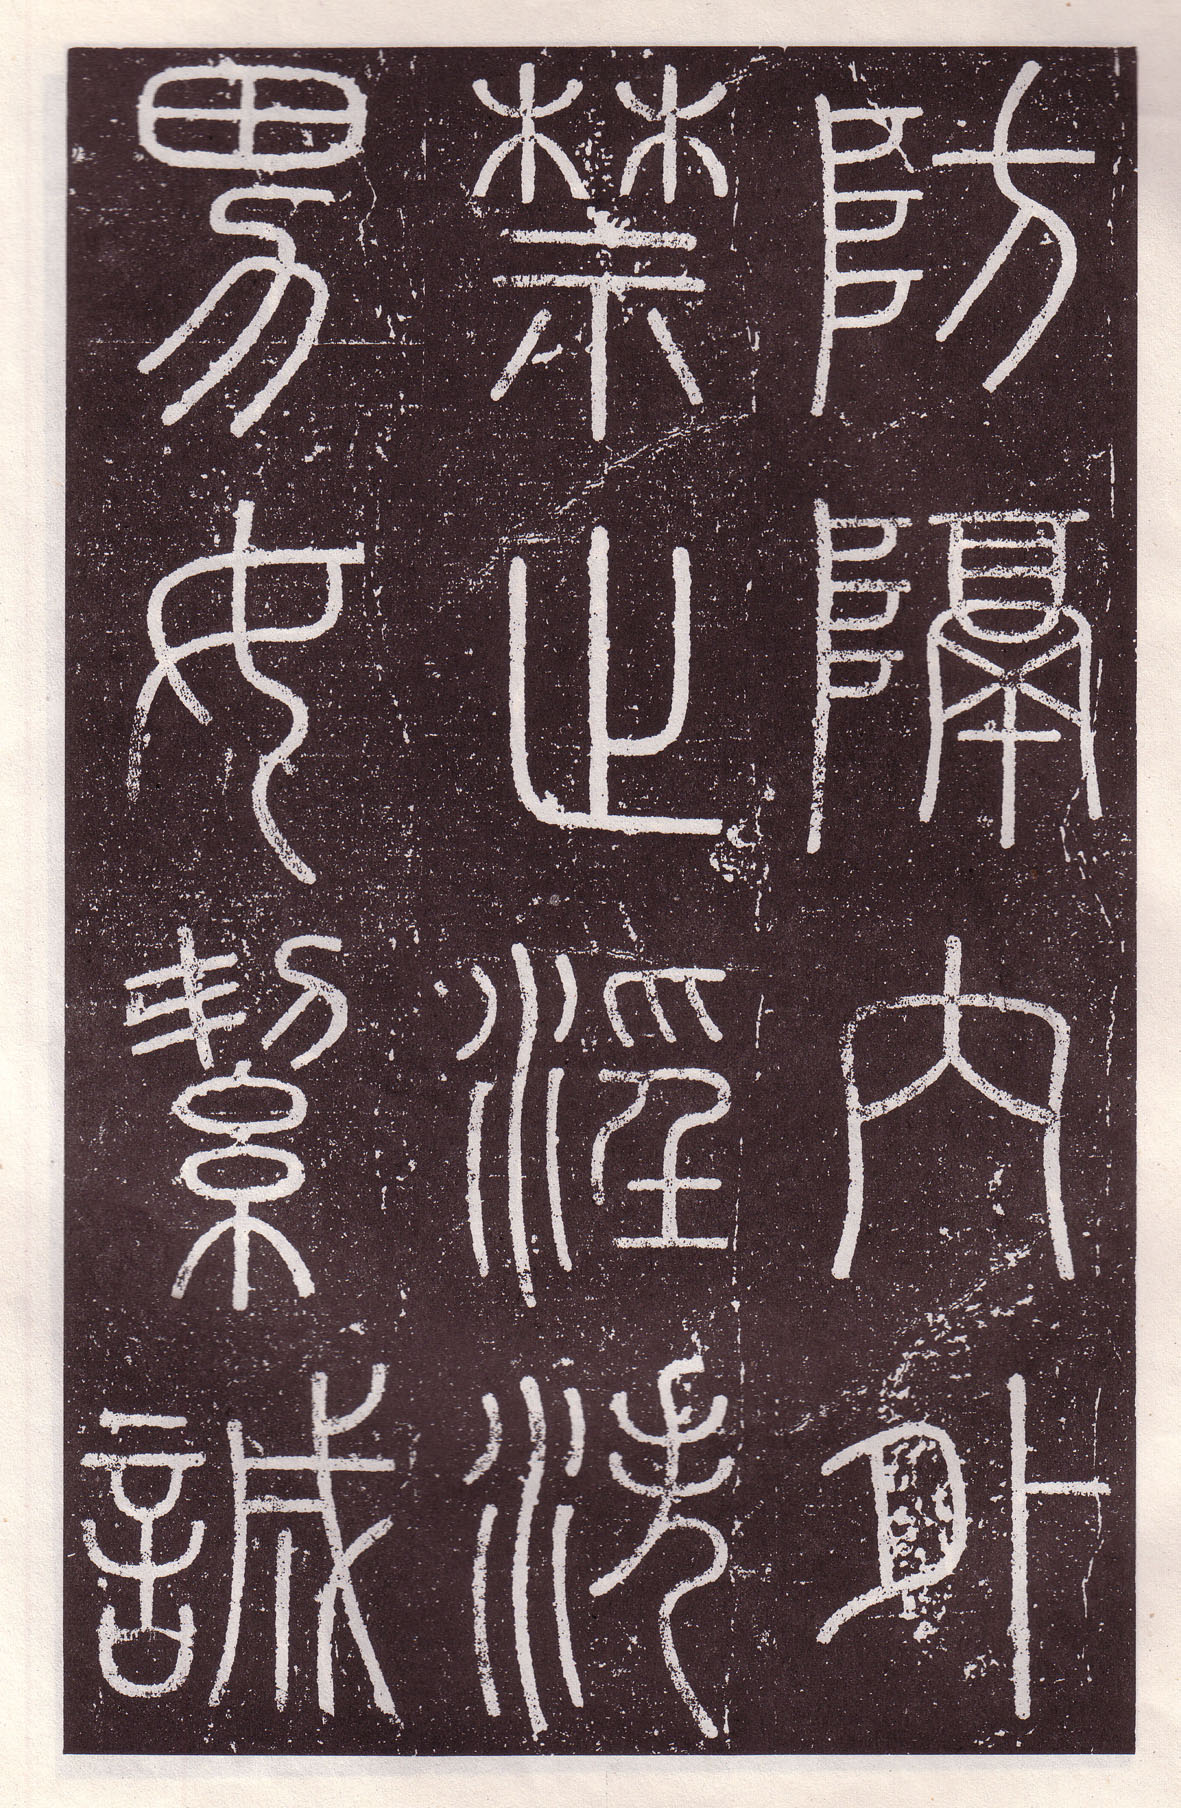 防隔内外
禁止淫泆
男女絜誠